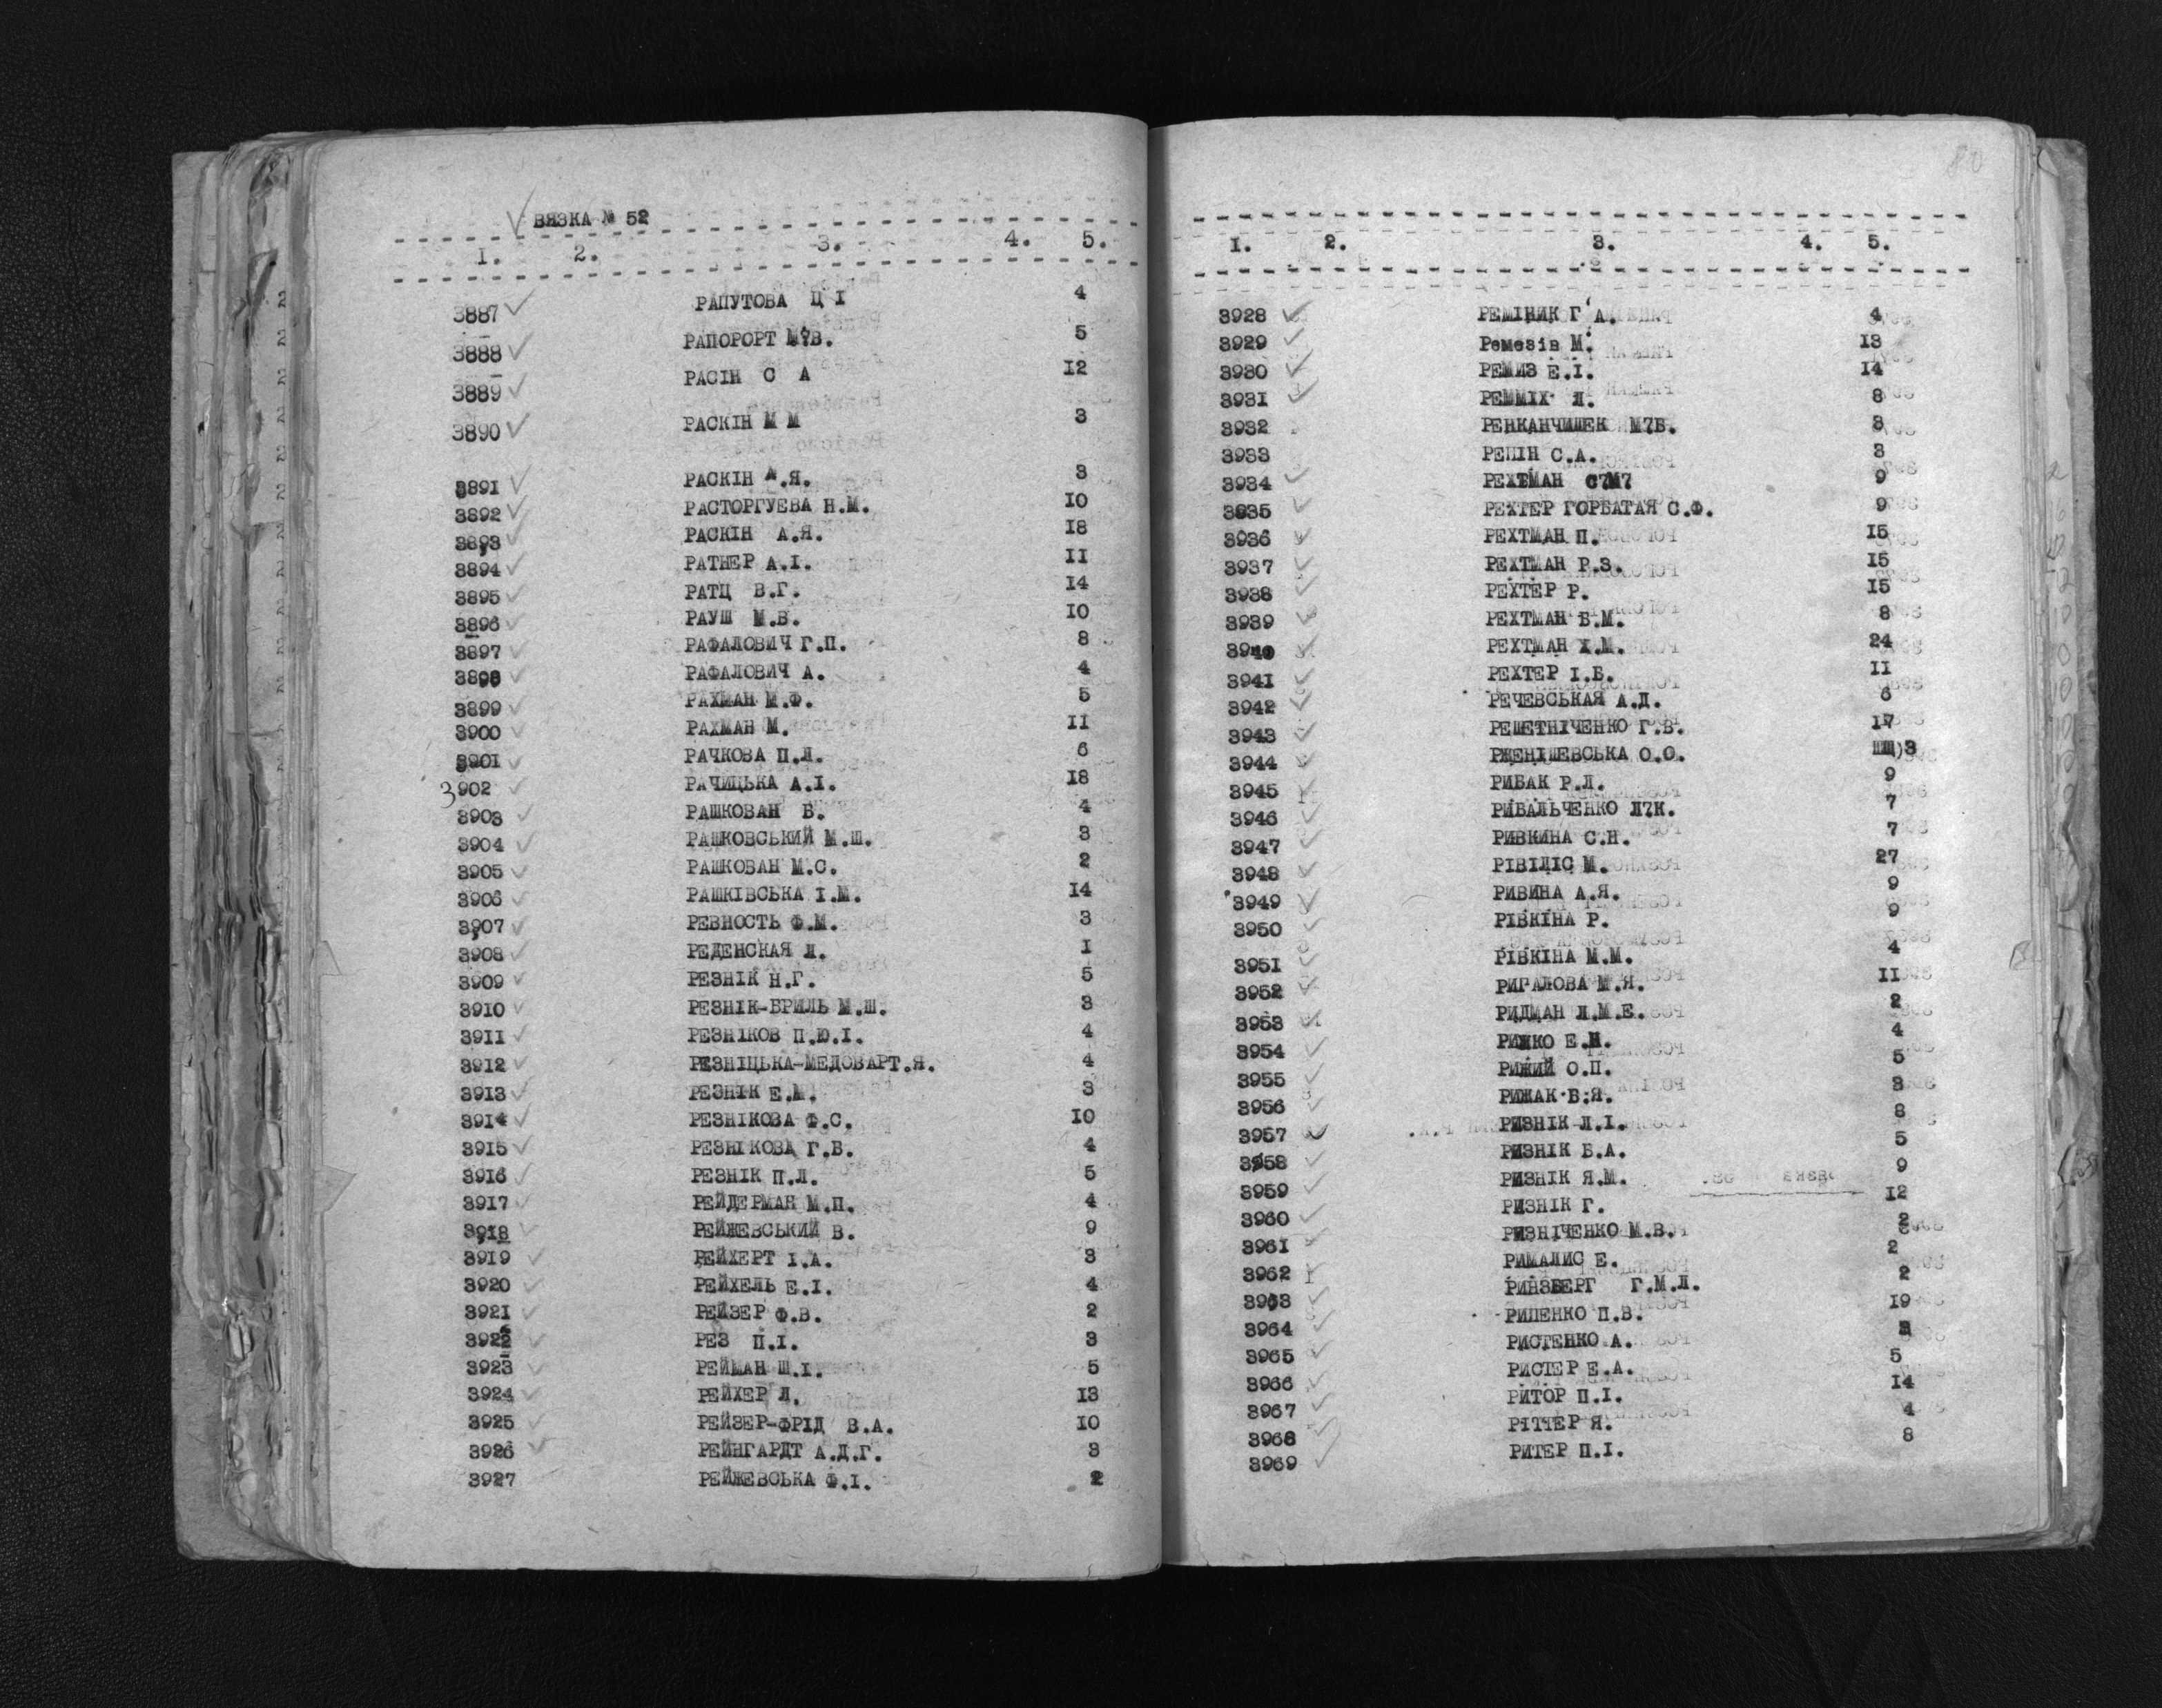 ВЯЗКА № 52
I. 2. 3. 4. 5.
3887 РАПУТОВА Ц І 4
3888 РАПОРОРТ М7В. 5
3889 РАСІН С А 12
3890 РАСКІН М М 3
3891 РАСКІН А.Я. 3
3892 РАСТОРГУЕВА Н.М. IO
3893 РАСКІН А.Я. I8
3894 РАТНЕР А.І. II
3895 РАТЦ В.Г. I4
3896 РАУШ М.В. IO
3897 РАФАЛОВИЧ Г.П. 8
3898 РАФАЛОВИЧ А. 4
3899 РАХМАН М.Ф. 5
3900 РАХМАН М. II
3901 РАЧКОВА П.Л. 6
3902 РАЧИЦЬКА А.І. I8
3903 РАШКОВАН Б. 4
3904 РАШКОВСЬКИЙ М.Ш. 3
3905 РАШКОВАН М.С. 2
3906 РАШКІВСЬКА І.М. I4
3907 РЕВНОСТЬ Ф.М. 3
3908 РЕДЕНСКАЯ Л. I
3909 РЕЗНІК Н.Г. 5
3910 РЕЗНІК-БРИЛЬ М.Ш. 3
3911 РЕЗНІКОВ П.Ю.І. 4
3912 РЕЗНІЦЬКА-МЕДОВАРТ.Я. 4
3913 РЕЗНІК Е.М. 3
3914 РЕЗНІКОВА Ф.С. IO
3915 РЕЗНІКОВА Г.Б. 4
3916 РЕЗНІК П.Л. 5
3917 РЕЙДЕРМАН М.П. 4
3918 РЕЙЖЕВСЬКИЙ В. 9
3919 РЕЙХЕРТ І.А. 3
3920 РЕЙХЕЛЬ Е.І. 4
3921 РЕЙЗЕР Ф.В. 2
3922 РЕЗ П.І. 3
3923 РЕЙМАН Ш.І. 5
3924 РЕЙХЕР Л. I3
3925 РЕЙЗЕР-ФРІД В.А. IO
3926 РЕЙНГАРДТ А.Д.Г. 3
3927 РЕЙЖЕВСЬКА Ф.І. 2
80
I. 2. 3. 4. 5.
3928 РЕМІНИК Г А. 4
3929 Ремезів М. I3
3930 РЕМИЗ Е.І. I4
3931 РЕММІХ Л. 8
3932 РЕНКАНЧИШЕК М7Б. 3
3933 РЕПІН С.А. 3
3934 РЕХТМАН С7М7 9
3935 РЕХТЕР ГОРБАТАЯ С.Ф. 9
3936 РЕХТМАН П. I5
3937 РЕХТМАН Р.З. I5
3938 РЕХТЕР Р. I5
3939 РЕХТМАН Б.М. 8
3940 РЕХТМАН Х.М. 24
3941 РЕХТЕР І.Б. II
3942 РЕЧЕВСЬКАЯ А.Д. 6
3943 РЕШЕТНІЧЕНКО Г.В. I7
3944 РЖЕНІШЕВСЬКА О.О. 3
3945 РИБАК Р.Л. 9
3946 РИБАЛЬЧЕНКО Л7К. 7
3947 РИВКИНА С.Н. 7
3948 РІВІДІС М. 27
3949 РИВИНА А.Я. 9
3950 РІВКІНА Р. 9
3951 РІВКІНА М.М. 4
3952 РИГАЛОВА М.Я. II
3953 РИДМАН Л.М.Е. 2
3954 РИЖКО Е.Н. 4
3955 РИЖИЙ О.П. 5
3956 РИЖАК Б.Я. 3
3957 РИЗНІК Л.І. 8
3958 РИЗНІК Б.А. 5
3959 РИЗНІК Я.М. 9
3960 РИЗНІК Г. I2
3961 РИЗНІЧЕНКО М.В. 2
3962 РИМАЛИС Е. 2
3963 РИНЗБЕРГ Г.М.Л. 2
3964 РИПЕНКО П.В. I9
3965 РИСТЕНКО А. 3
3966 РИСТЕР Е.А. 5
3967 РИТОР П.І. I4
3968 РІТТЕР Я. 4
3969 РИТЕР П.І. 8